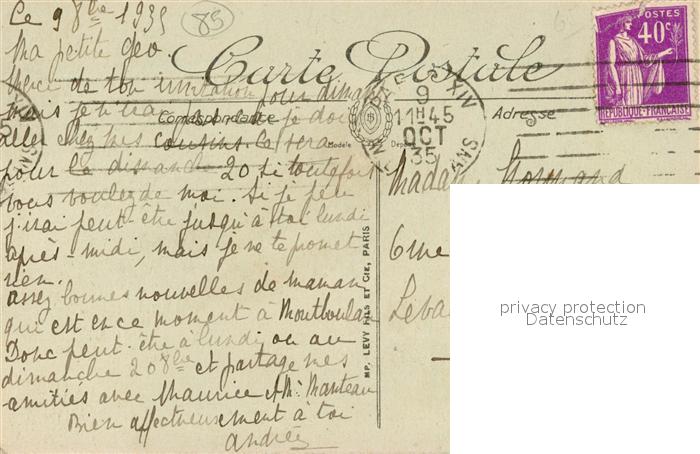 Le 9 8bre 1935
85
Ma petite Géo
Merci de ton invitation pour dimanche
mais je n'irai pas je dois
aller chez mes cousins. Ce sera
pour le dimanche 20 si toutefois
vous voulez de moi. Si je peux
j'irai peut-être jusqu'à toi lundi
après-midi, mais je ne te promet
rien.
assez bonnes nouvelles de maman
qui est en ce moment à Montboulan
Donc peut-être à lundi ou au
dimanche 20 8bre et partage mes
amitiés avec Maurice et Mr Manteau
Bien affectueusement à toi
Andrée
Carte Postale
Correspondance
Modèle Dép
Adresse
MP. LEVY FILS ET CIE, PARIS
POSTES
40c
REPUBLIQUE-FRANÇAISE
9
11H45
OCT
35
Madame Normand
6 rue
Leva
privacy protection
Datenschutz